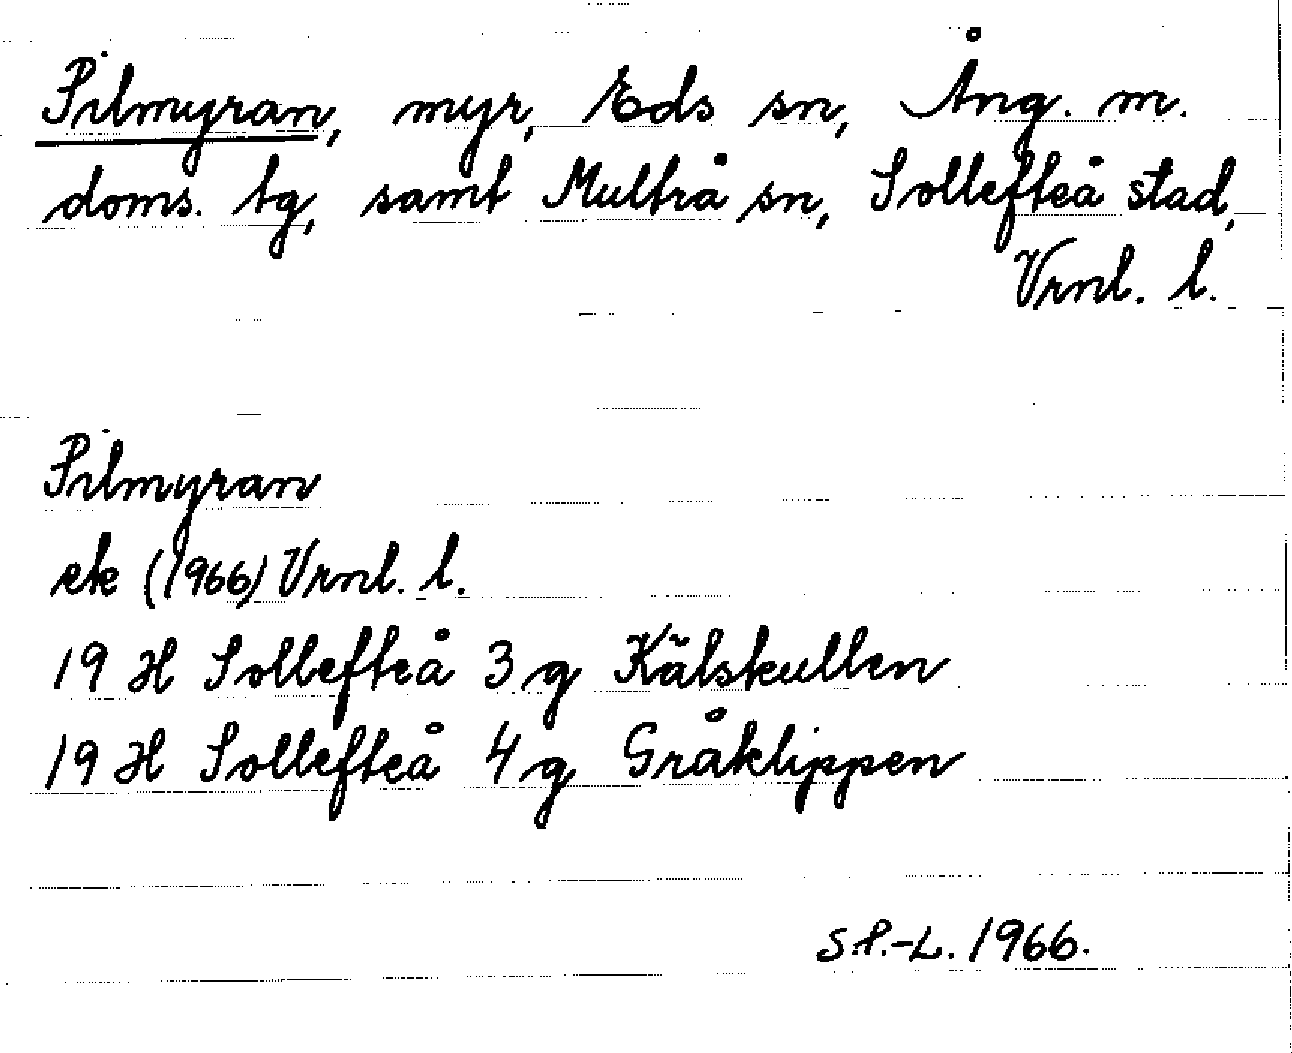 Pilmyran, myr, Eds sn, Ång. m.
doms. tg, samt Multrå sn, Sollefteå stad,
Vrnl. l.
Pilmyran
ek (1966) Vrnl. l.
19 H Sollefteå 3 g Kälskullen
19 H Sollefteå 4 g Gråklippen
S.P.-L. 1966.